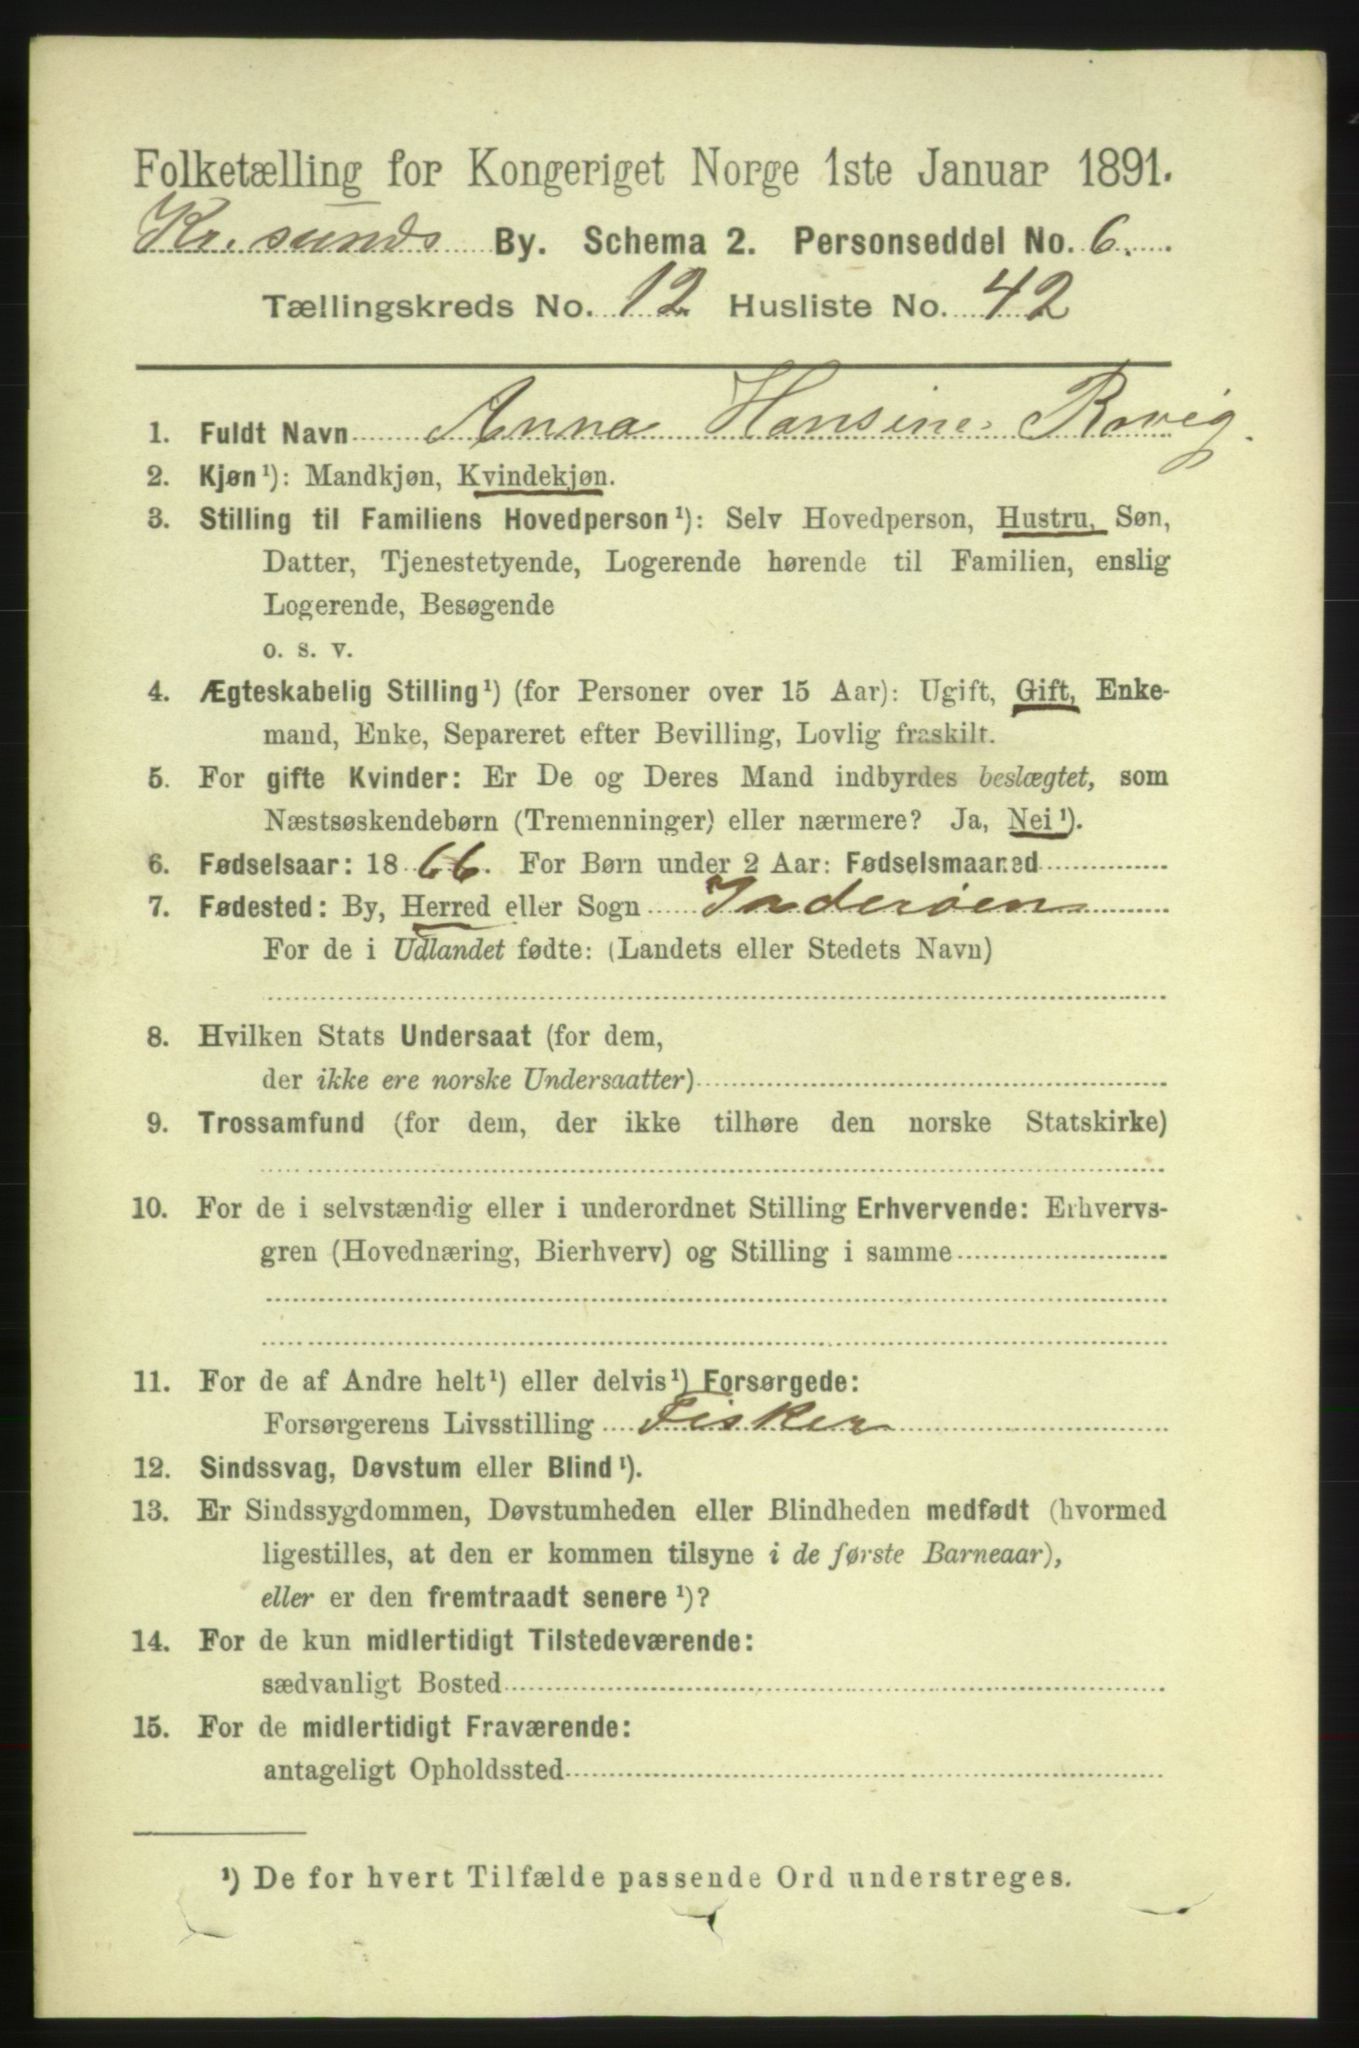 Folketælling for Kongeriget Norge 1ste Januar 1891.
Kr.sunds By. Schema 2. Personseddel No. 6.
Tællingskreds No. 12 Husliste No. 42
1. Fuldt Navn Anna Hansine Rovig.
2. Kjøn¹): Mandkjøn, Kvindekjøn.
3. Stilling til Familiens Hovedperson¹): Selv Hovedperson, Hustru, Søn,
Datter, Tjenestetyende, Logerende hørende til Familien, enslig
Logerende, Besøgende
o. s. v.
4. Ægteskabelig Stilling¹) (for Personer over 15 Aar): Ugift, Gift, Enke-
mand, Enke, Separeret efter Bevilling, Lovlig fraskilt.
5. For gifte Kvinder: Er De og Deres Mand indbyrdes beslægtet, som
Næstsøskendebørn (Tremenninger) eller nærmere? Ja, Nei¹).
6. Fødselsaar: 1866. For Børn under 2 Aar: Fødselsmaaned
7. Fødested: By, Herred eller Sogn Inderøen
For de i Udlandet fødte: (Landets eller Stedets Navn)
8. Hvilken Stats Undersaat (for dem,
der ikke ere norske Undersaatter)
9. Trossamfund (for dem, der ikke tilhøre den norske Statskirke)
10. For de i selvstændig eller i underordnet Stilling Erhvervende: Erhvervs-
gren (Hovednæring, Bierhverv) og Stilling i samme
11. For de af Andre helt¹) eller delvis¹) Forsørgede:
Forsørgerens Livsstilling Fisker
12. Sindssvag, Døvstum eller Blind¹).
13. Er Sindssygdommen, Døvstumheden eller Blindheden medfødt (hvormed
ligestilles, at den er kommen tilsyne i de første Barneaar),
eller er den fremtraadt senere¹)?
14. For de kun midlertidigt Tilstedeværende:
sædvanligt Bosted
15. For de midlertidigt Fraværende:
antageligt Opholdssted
¹) De for hvert Tilfælde passende Ord understreges.